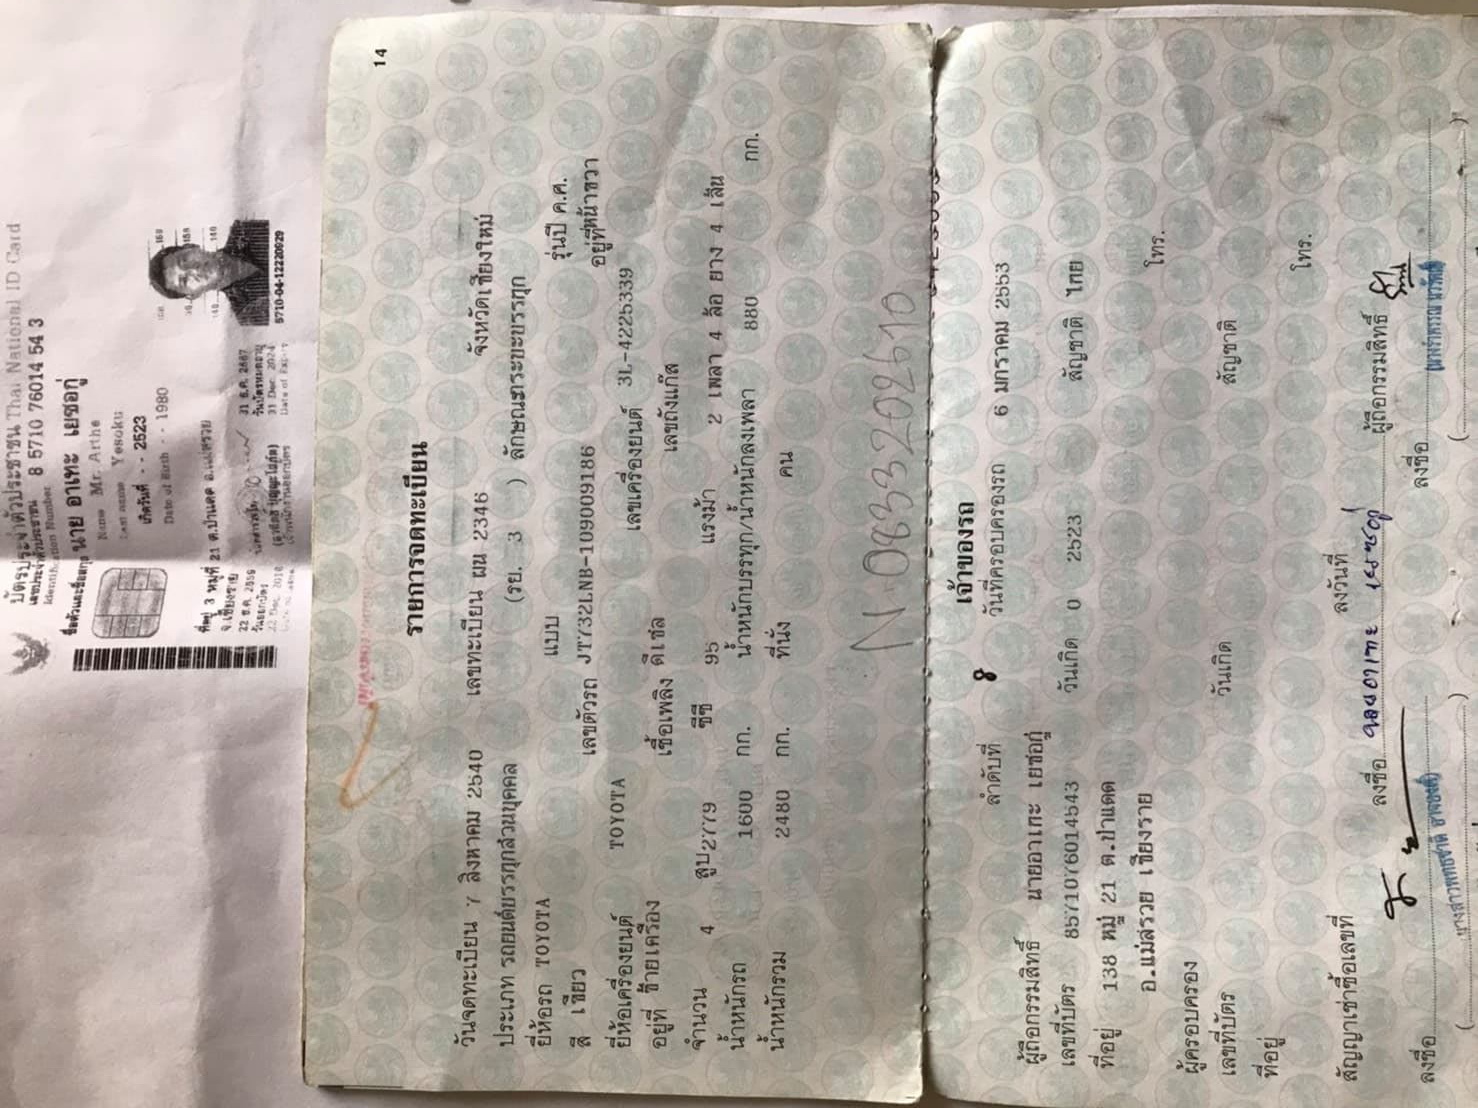 บัตรประจำตัวประชาชน Thai National ID Card
เลขประจำตัวประชาชน 8 5710 76014 54 3
Identification Number
ชื่อตัวและชื่อสกุล นาย อาเทะ เยซอกู่
Name Mr. Arthe
Last name Yesoku
เกิดวันที่ - - 2523
Date of Birth - - 1980
ที่อยู่ 3 หมู่ที่ 21 ต.ป่าแดด อ.แม่สรวย
จ.เชียงราย
22 ธ.ค. 2556
วันออกบัตร
31 ธ.ค. 2567
วันบัตรหมดอายุ
31 Dec. 2024
เจ้าพนักงานออกบัตร
5710-04-12220929
14
รายการจดทะเบียน
วันจดทะเบียน 7 สิงหาคม 2540 เลขทะเบียน ผน 2346 จังหวัดเชียงใหม่
ประเภท รถยนต์บรรทุกส่วนบุคคล (รย. 3 ) ลักษณะกระบะบรรทุก
ยี่ห้อรถ TOYOTA แบบ รุ่นปี ค.ศ.
สี เขียว เลขตัวรถ JT732LNB-109009186 อยู่ที่หน้าขวา
ยี่ห้อเครื่องยนต์ TOYOTA เลขเครื่องยนต์ 3L-4225339
อยู่ที่ ซ้ายเครื่อง เชื้อเพลิง ดีเซล เลขถังแก๊ส
จำนวน 4 สูบ 2779 ซีซี 95 แรงม้า 2 เพลา 4 ล้อ ยาง 4 เส้น
น้ำหนักรถ 1600 กก. น้ำหนักบรรทุก/น้ำหนักลงเพลา 880 กก.
น้ำหนักรวม 2480 กก. ที่นั่ง คน
N.0833202610
เจ้าของรถ
ลำดับที่ 8 วันที่ครอบครองรถ 6 มกราคม 2553
ผู้ถือกรรมสิทธิ์ นายอาเทะ เยซอกู่
เลขที่บัตร 8571076014543 วันเกิด 0 2523 สัญชาติ ไทย
ที่อยู่ 138 หมู่ 21 ต.ป่าแดด โทร.
อ.แม่สรวย เชียงราย
ผู้ครอบครอง
เลขที่บัตร วันเกิด สัญชาติ
ที่อยู่ โทร.
สัญญาเช่าซื้อเลขที่ ลงวันที่
ลงชื่อ ผู้ถือกรรมสิทธิ์
ลงชื่อ ลงชื่อ